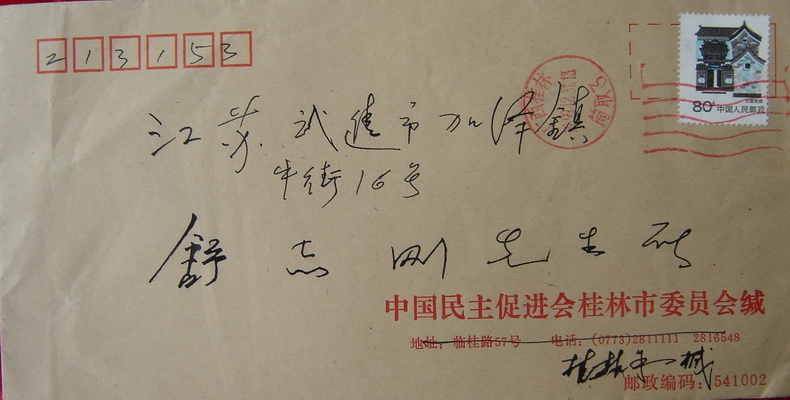 213153
80分 中国人民邮政
江苏武进市加泽镇
牛街16号
舒志刚先生 收
中国民主促进会桂林市委员会缄
地址：临桂路57号 电话：(0773)2811111 2816548
桂林 缄
邮政编码：541002